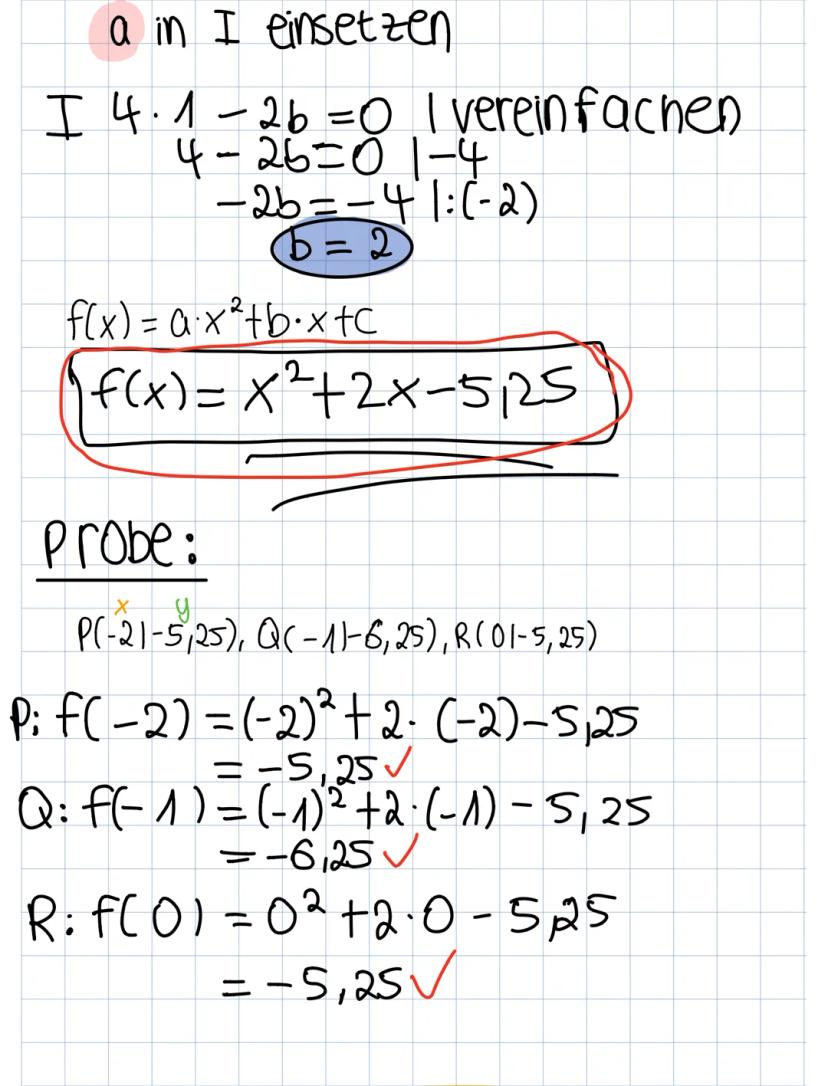 a in I einsetzen
I 4·1 - 2b = 0 | vereinfachen
4 - 2b = 0 | -4
-2b = -4 |:(-2)
b = 2
f(x) = a·x²+b·x+c
f(x) = x²+2x-5,25
Probe:
x y
P(-2|-5,25), Q(-1|-6,25), R(0|-5,25)
P: f(-2) = (-2)²+2·(-2)-5,25
= -5,25 ✓
Q: f(-1) = (-1)²+2·(-1)-5,25
= -6,25 ✓
R: f(0) = 0²+2·0-5,25
= -5,25 ✓